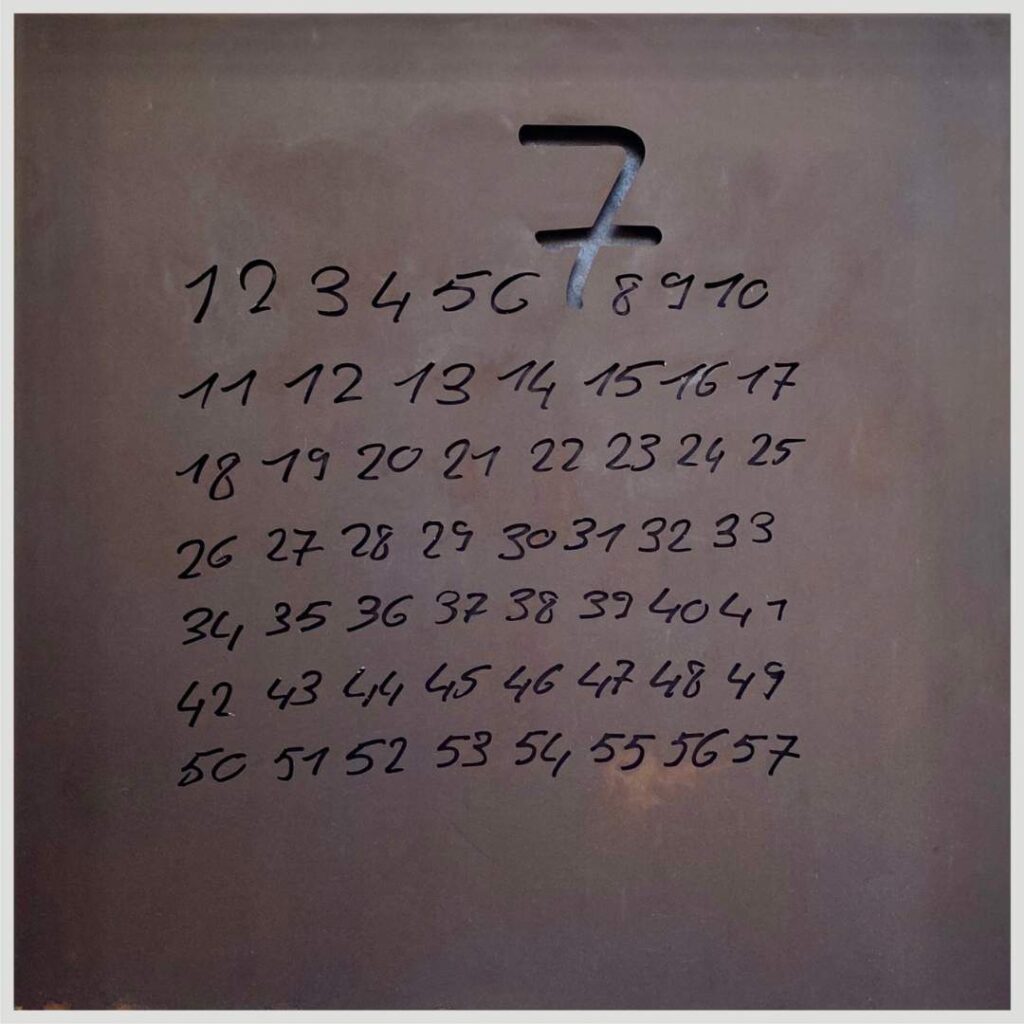 1 2 3 4 5 6 7 8 9 10
11 12 13 14 15 16 17
18 19 20 21 22 23 24 25
26 27 28 29 30 31 32 33
34 35 36 37 38 39 40 41
42 43 44 45 46 47 48 49
50 51 52 53 54 55 56 57